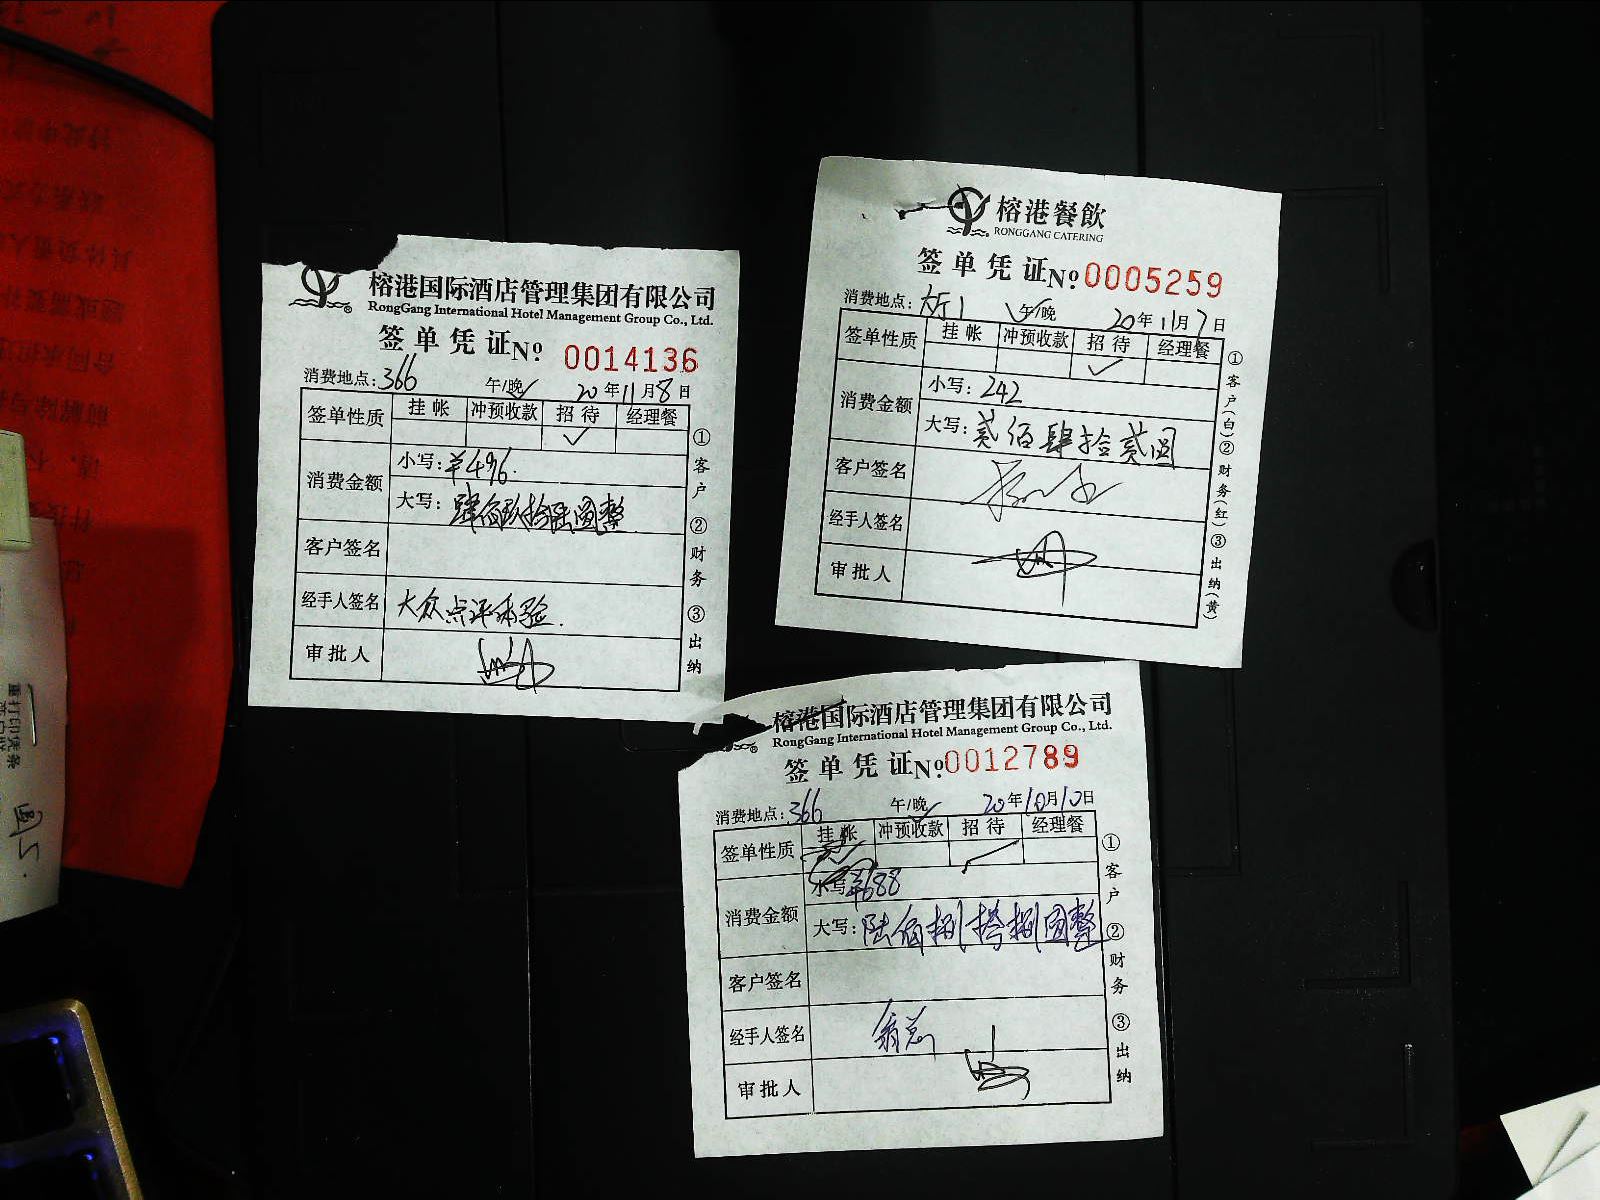 榕港国际酒店管理集团有限公司
RongGang International Hotel Management Group Co., Ltd.
签单凭证 No 0014136
消费地点:366 午/晚 20年11月8日
签单性质 挂帐 冲预收款 招待 经理餐
消费金额 小写:¥496.
大写:肆佰玖拾陆圆整
客户签名
经手人签名 大众点评体验.
审批人
①客户 ②财务 ③出纳
榕港餐飲
RONGGANG CATERING
签单凭证 No 0005259
消费地点:大厅1 午/晚 20年11月7日
签单性质 挂帐 冲预收款 招待 经理餐
消费金额 小写:242
大写:贰佰肆拾贰圆
客户签名
经手人签名
审批人
①客户(白)②财务(红)③出纳(黄)
榕港国际酒店管理集团有限公司
RongGang International Hotel Management Group Co., Ltd.
签单凭证 No 0012789
消费地点:366 午/晚 20年10月10日
签单性质 挂帐 冲预收款 招待 经理餐
消费金额 小写:¥688
大写:陆佰捌拾捌圆整
客户签名
经手人签名 翁总
审批人
①客户 ②财务 ③出纳
重打印凭条